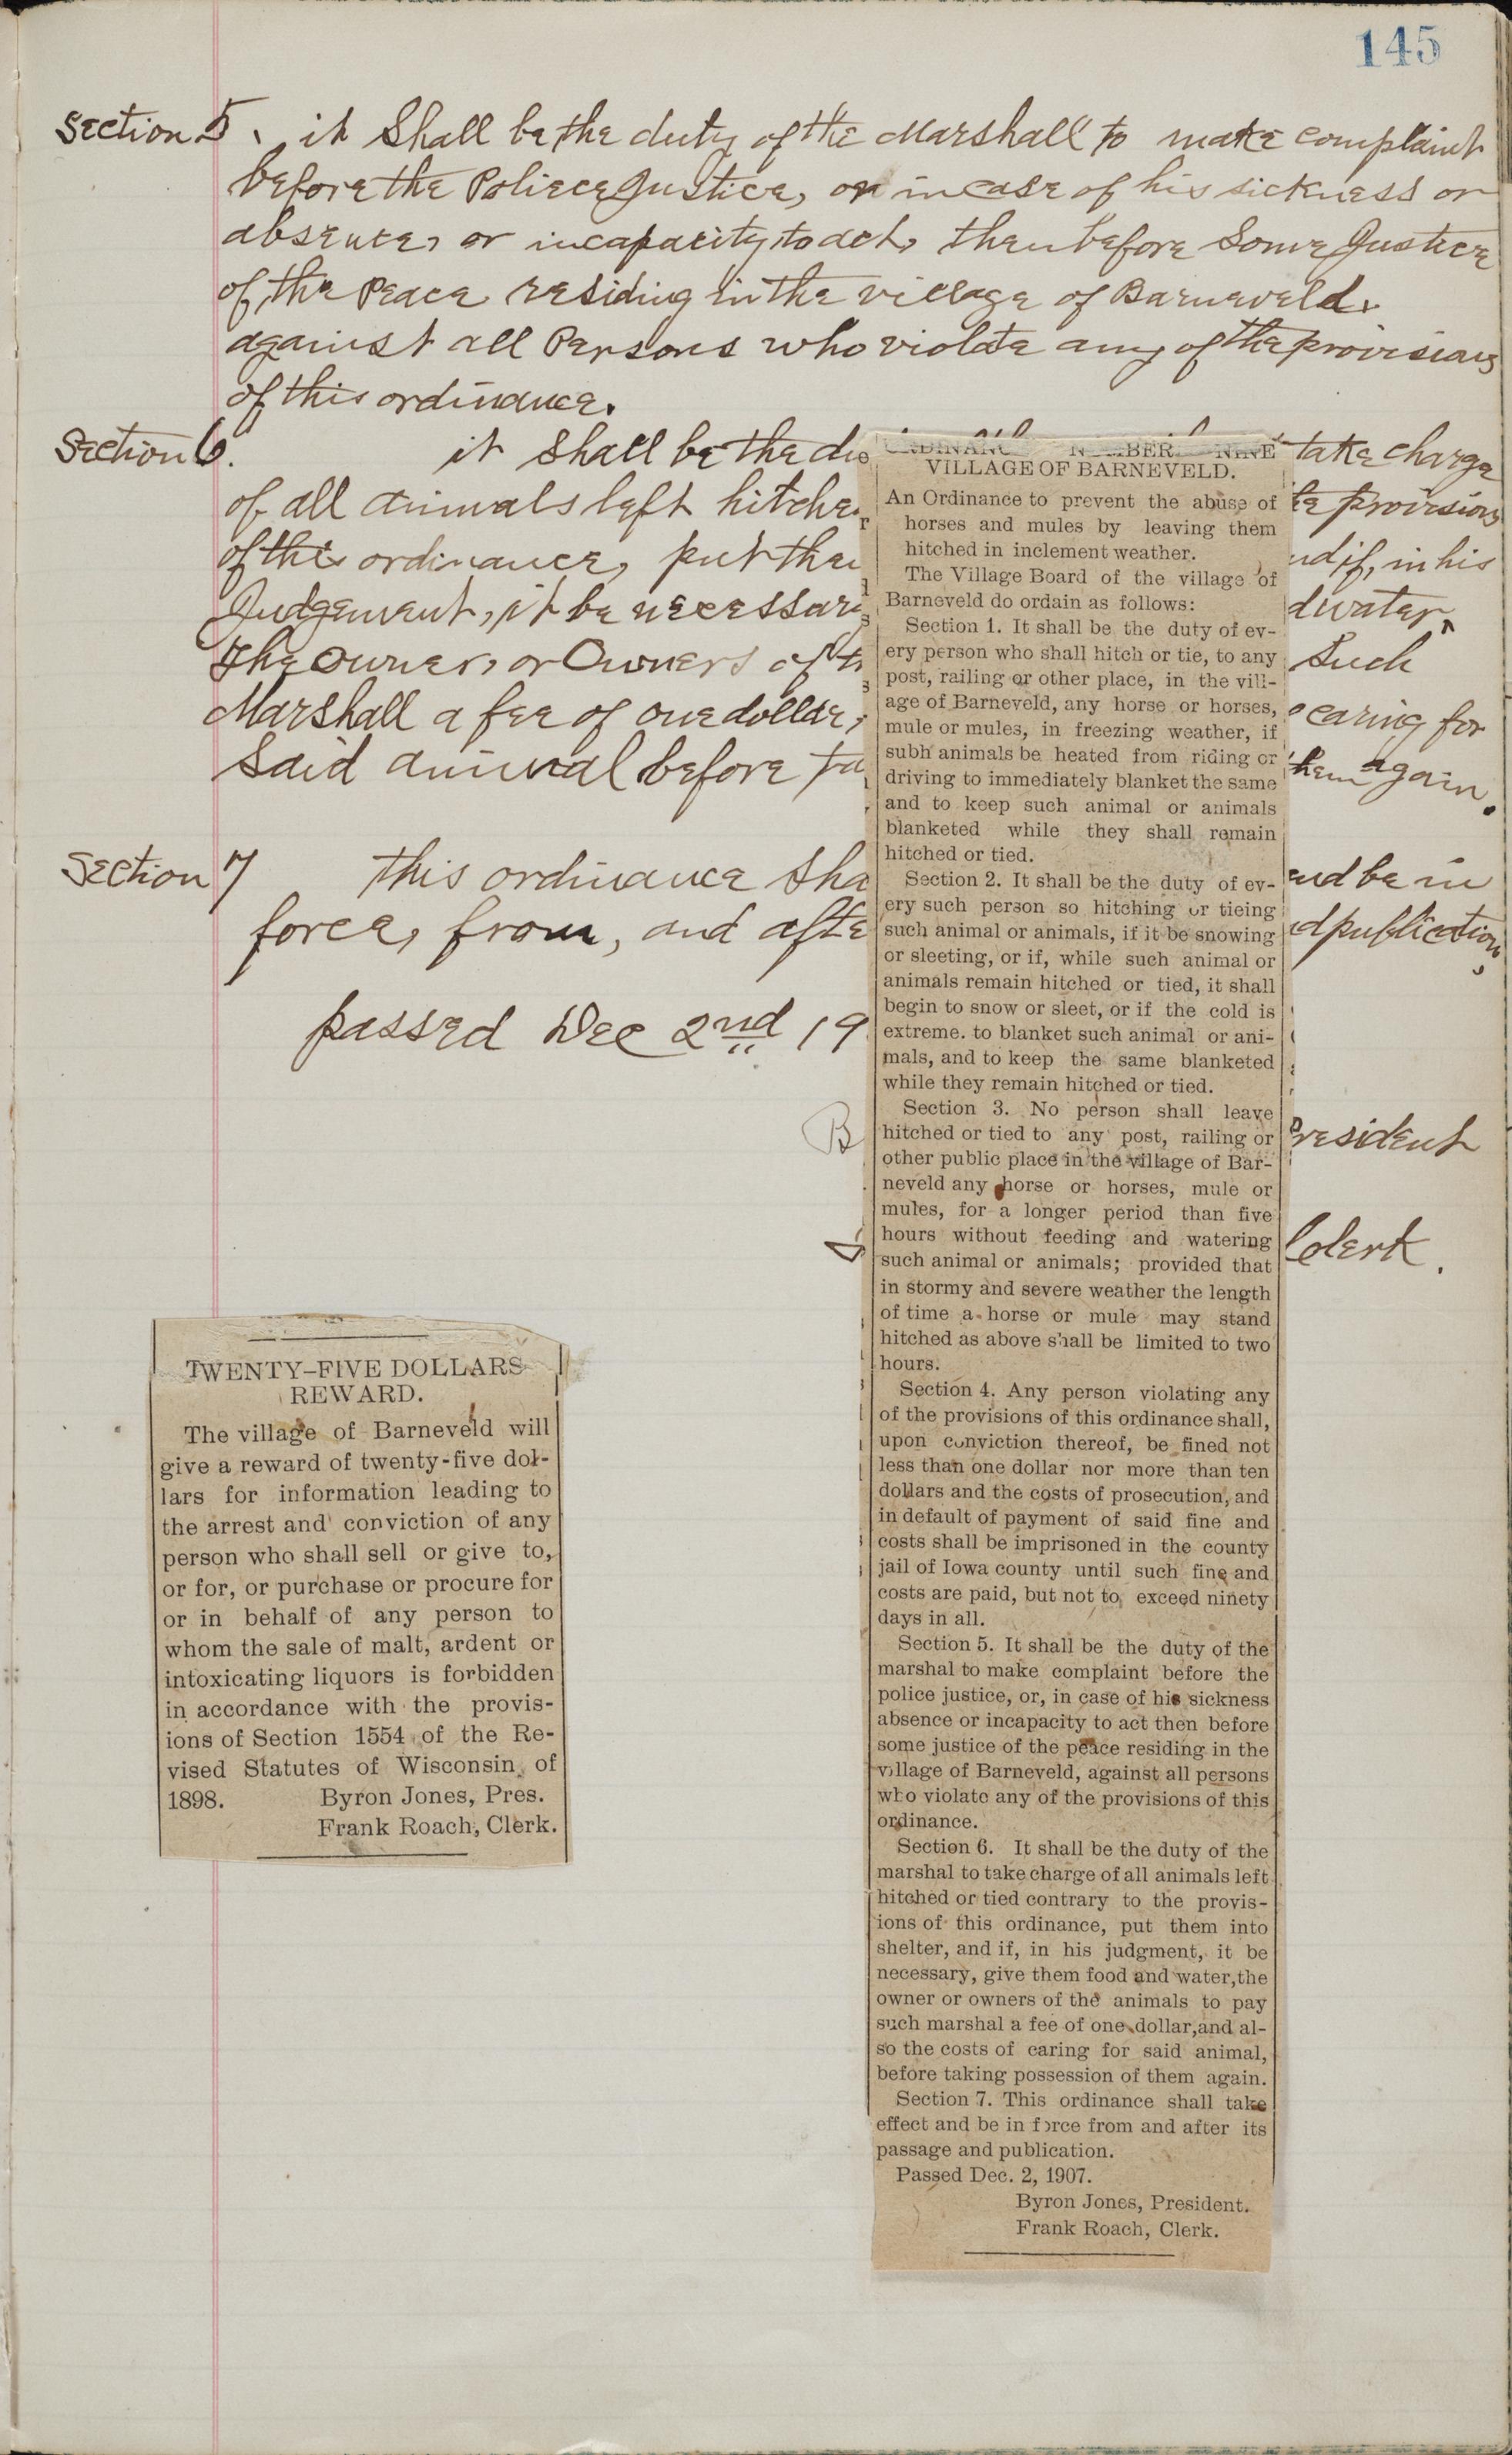 145
Section 5. it Shall be the duty of the Marshall to make complaint
before the Poliece Justice, or in case of his sickness or
absence, or incapacity to act, then before Some Justice
of the Peace residing in the village of Barneveld.
against all Persons who violate any of the provisions
of this ordinance.
Section 6. it Shall be the du take charge
of all animals left hitche provisions
of this ordinance, put the if, in his
Judgement, it be necessary water,
The owner, or Owners of th Such
Marshall a fee of one dollar, caring for
Said animal before ta them again.
Section 7 this ordinance Sha and be in
force, from, and afte publication,
passed Dec 2nd 19
B President
Clerk.
TWENTY-FIVE DOLLARS
REWARD.
The village of Barneveld will
give a reward of twenty-five dol-
lars for information leading to
the arrest and conviction of any
person who shall sell or give to,
or for, or purchase or procure for
or in behalf of any person to
whom the sale of malt, ardent or
intoxicating liquors is forbidden
in accordance with the provis-
ions of Section 1554 of the Re-
vised Statutes of Wisconsin of
1898. Byron Jones, Pres.
Frank Roach, Clerk.
ORDINANCE NUMBER NINE
VILLAGE OF BARNEVELD.
An Ordinance to prevent the abuse of
horses and mules by leaving them
hitched in inclement weather.
The Village Board of the village of
Barneveld do ordain as follows:
Section 1. It shall be the duty of ev-
ery person who shall hitch or tie, to any
post, railing or other place, in the vill-
age of Barneveld, any horse or horses,
mule or mules, in freezing weather, if
subh animals be heated from riding or
driving to immediately blanket the same
and to keep such animal or animals
blanketed while they shall remain
hitched or tied.
Section 2. It shall be the duty of ev-
ery such person so hitching or tieing
such animal or animals, if it be snowing
or sleeting, or if, while such animal or
animals remain hitched or tied, it shall
begin to snow or sleet, or if the cold is
extreme. to blanket such animal or ani-
mals, and to keep the same blanketed
while they remain hitched or tied.
Section 3. No person shall leave
hitched or tied to any post, railing or
other public place in the village of Bar-
neveld any horse or horses, mule or
mules, for a longer period than five
hours without feeding and watering
such animal or animals; provided that
in stormy and severe weather the length
of time a horse or mule may stand
hitched as above shall be limited to two
hours.
Section 4. Any person violating any
of the provisions of this ordinance shall,
upon conviction thereof, be fined not
less than one dollar nor more than ten
dollars and the costs of prosecution, and
in default of payment of said fine and
costs shall be imprisoned in the county
jail of Iowa county until such fine and
costs are paid, but not to exceed ninety
days in all.
Section 5. It shall be the duty of the
marshal to make complaint before the
police justice, or, in case of his sickness
absence or incapacity to act then before
some justice of the peace residing in the
village of Barneveld, against all persons
who violate any of the provisions of this
ordinance.
Section 6. It shall be the duty of the
marshal to take charge of all animals left
hitched or tied contrary to the provis-
ions of this ordinance, put them into
shelter, and if, in his judgment, it be
necessary, give them food and water,the
owner or owners of the animals to pay
such marshal a fee of one dollar,and al-
so the costs of caring for said animal,
before taking possession of them again.
Section 7. This ordinance shall take
effect and be in force from and after its
passage and publication.
Passed Dec. 2, 1907.
Byron Jones, President.
Frank Roach, Clerk.